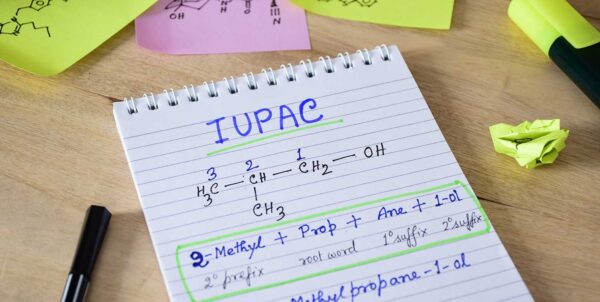 OH
N
IUPAC
3 2 1
H3C — CH — CH2 — OH
|
CH3
2-Methyl + Prop + Ane + 1-ol
2° prefix root word 1° suffix 2° suffix
Methylpropane-1-ol